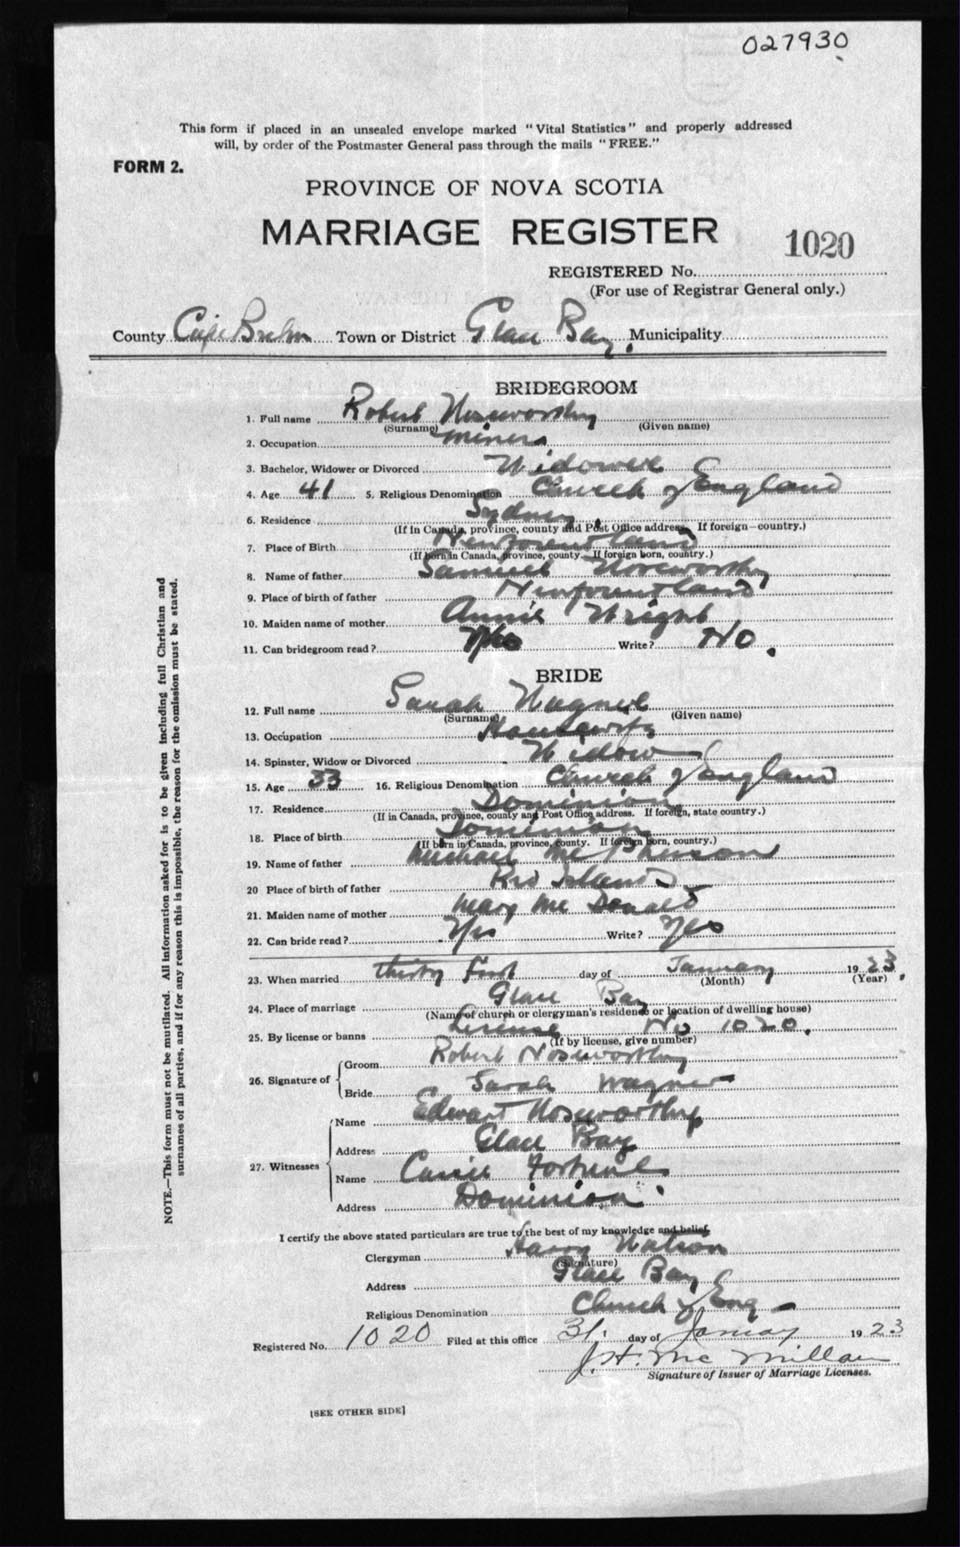 027930
This form if placed in an unsealed envelope marked "Vital Statistics" and properly addressed
will, by order of the Postmaster General pass through the mails "FREE."
FORM 2.
PROVINCE OF NOVA SCOTIA
MARRIAGE REGISTER
1020
REGISTERED No.
(For use of Registrar General only.)
County Cape Breton Town or District Glace Bay. Municipality
BRIDEGROOM
1. Full name Robert Noseworthy
(Surname) (Given name)
2. Occupation Miner
3. Bachelor, Widower or Divorced Widower
4. Age 41 5. Religious Denomination Church of England
6. Residence Sydney
(If in Canada, province, county and Post Office address. If foreign—country.)
7. Place of Birth Newfoundland
(If born in Canada, province, county. If foreign born, country.)
8. Name of father Samuel Noseworthy
9. Place of birth of father Newfoundland
10. Maiden name of mother Annie Wright
11. Can bridegroom read? Write? No.
BRIDE
12. Full name Sarah Wagner
(Surname) (Given name)
13. Occupation Housewife
14. Spinster, Widow or Divorced Widow
15. Age 33 16. Religious Denomination Church of England
17. Residence Dominion
(If in Canada, province, county and Post Office address. If foreign, state country.)
18. Place of birth Dominion
(If born in Canada, province, county. If foreign born, country.)
19. Name of father Michael McPherson
20 Place of birth of father Red Islands
21. Maiden name of mother Mary McDonald
22. Can bride read? Yes Write? Yes
23. When married thirty first day of January 1923.
(Month) (Year)
24. Place of marriage Glace Bay
(Name of church or clergyman's residence or location of dwelling house)
25. By license or banns License No 1020.
(If by license, give number)
26. Signature of Groom Robert Noseworthy
Bride Sarah Wagner
27. Witnesses Name Edward Noseworthy
Address Glace Bay
Name Carrie Fortune
Address Dominion.
I certify the above stated particulars are true to the best of my knowledge and belief.
Clergyman Harry Watson
(Signature)
Address Glace Bay
Religious Denomination Church of Eng
Registered No. 1020 Filed at this office 31. day of January 1923
J. H. Mc Millan
Signature of Issuer of Marriage Licenses.
[SEE OTHER SIDE]
NOTE.—This form must not be mutilated. All information asked for is to be given including full Christian and
surnames of all parties, and if for any reason this is impossible, the reason for the omission must be stated.